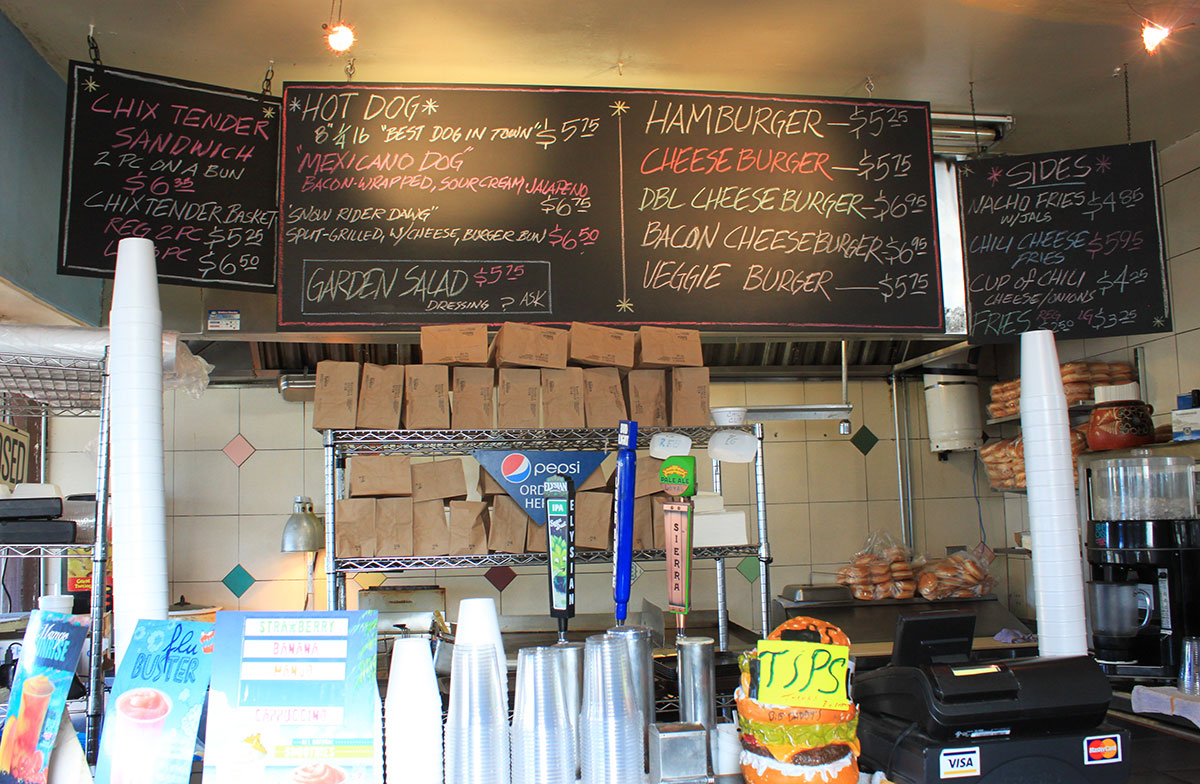 CHIX TENDER
SANDWICH
2 PC ON A BUN
$6.35
CHIX TENDER BASKET
REG 2 PC $5.25
PC $6.50
*HOT DOG*
8" 1/4 lb "BEST DOG IN TOWN" $5.75
"MEXICANO DOG"
BACON-WRAPPED, SOUR CREAM, JALAPENO
$6.75
"SNOW RIDER DAWG"
SPLIT-GRILLED, W/CHEESE, BURGER BUN $6.50
GARDEN SALAD $5.75
DRESSING ? ASK
HAMBURGER — $5.25
CHEESE BURGER — $5.75
DBL CHEESE BURGER - $6.95
BACON CHEESEBURGER - $6.95
VEGGIE BURGER — $5.75
* SIDES *
NACHO FRIES $4.85
W/JALS
CHILI CHEESE $5.95
FRIES
CUP OF CHILI $4.25
CHEESE/ONIONS
FRIES REG LG $3.25
pepsi
ORD
HE
ELYSIAN
IPA
ELYSIAN
PALE ALE
SIERRA
flu
BUSTER
STRAWBERRY
BANANA
MANGO
CAPPUCCINO
TIPS
VISA
MasterCard